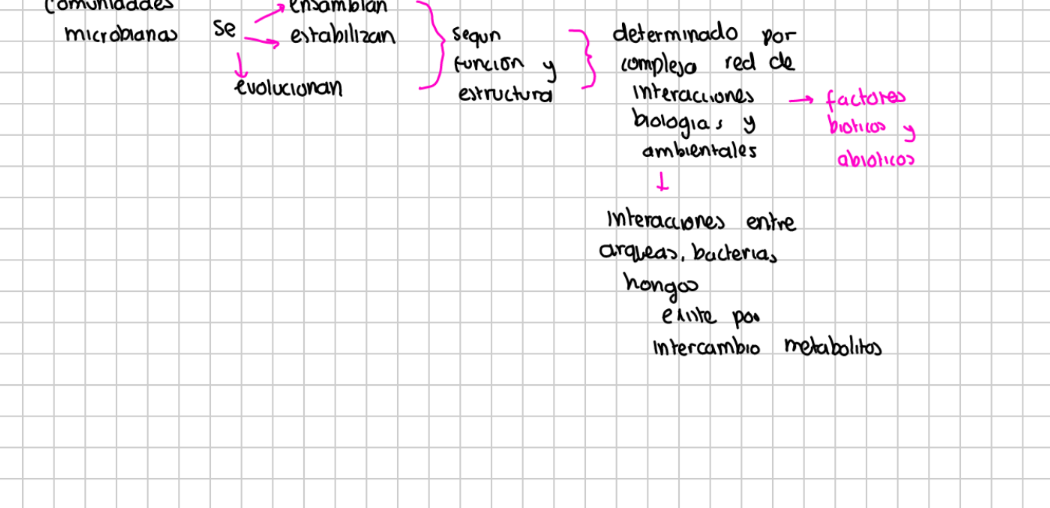 comunidades
microbianas se
ensamblan
estabilizan
evolucionan
segun
función y
estructura
determinado por
compleja red de
interacciones
biologias y
ambientales
factores
bioticos y
abioticos
interacciones entre
arqueas, bacterias,
hongos
existe por
intercambio metabolitos